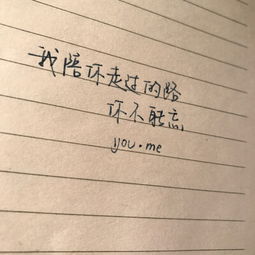 我陪你走过的路
你不能忘
you·me